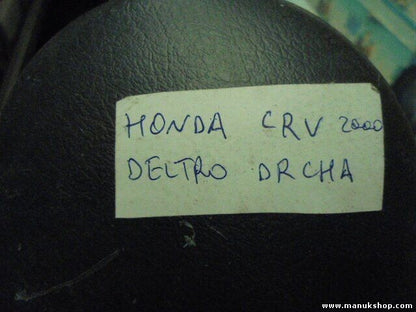 HONDA CRV 2000
DELTRO DRCHA
www.manukshop.com